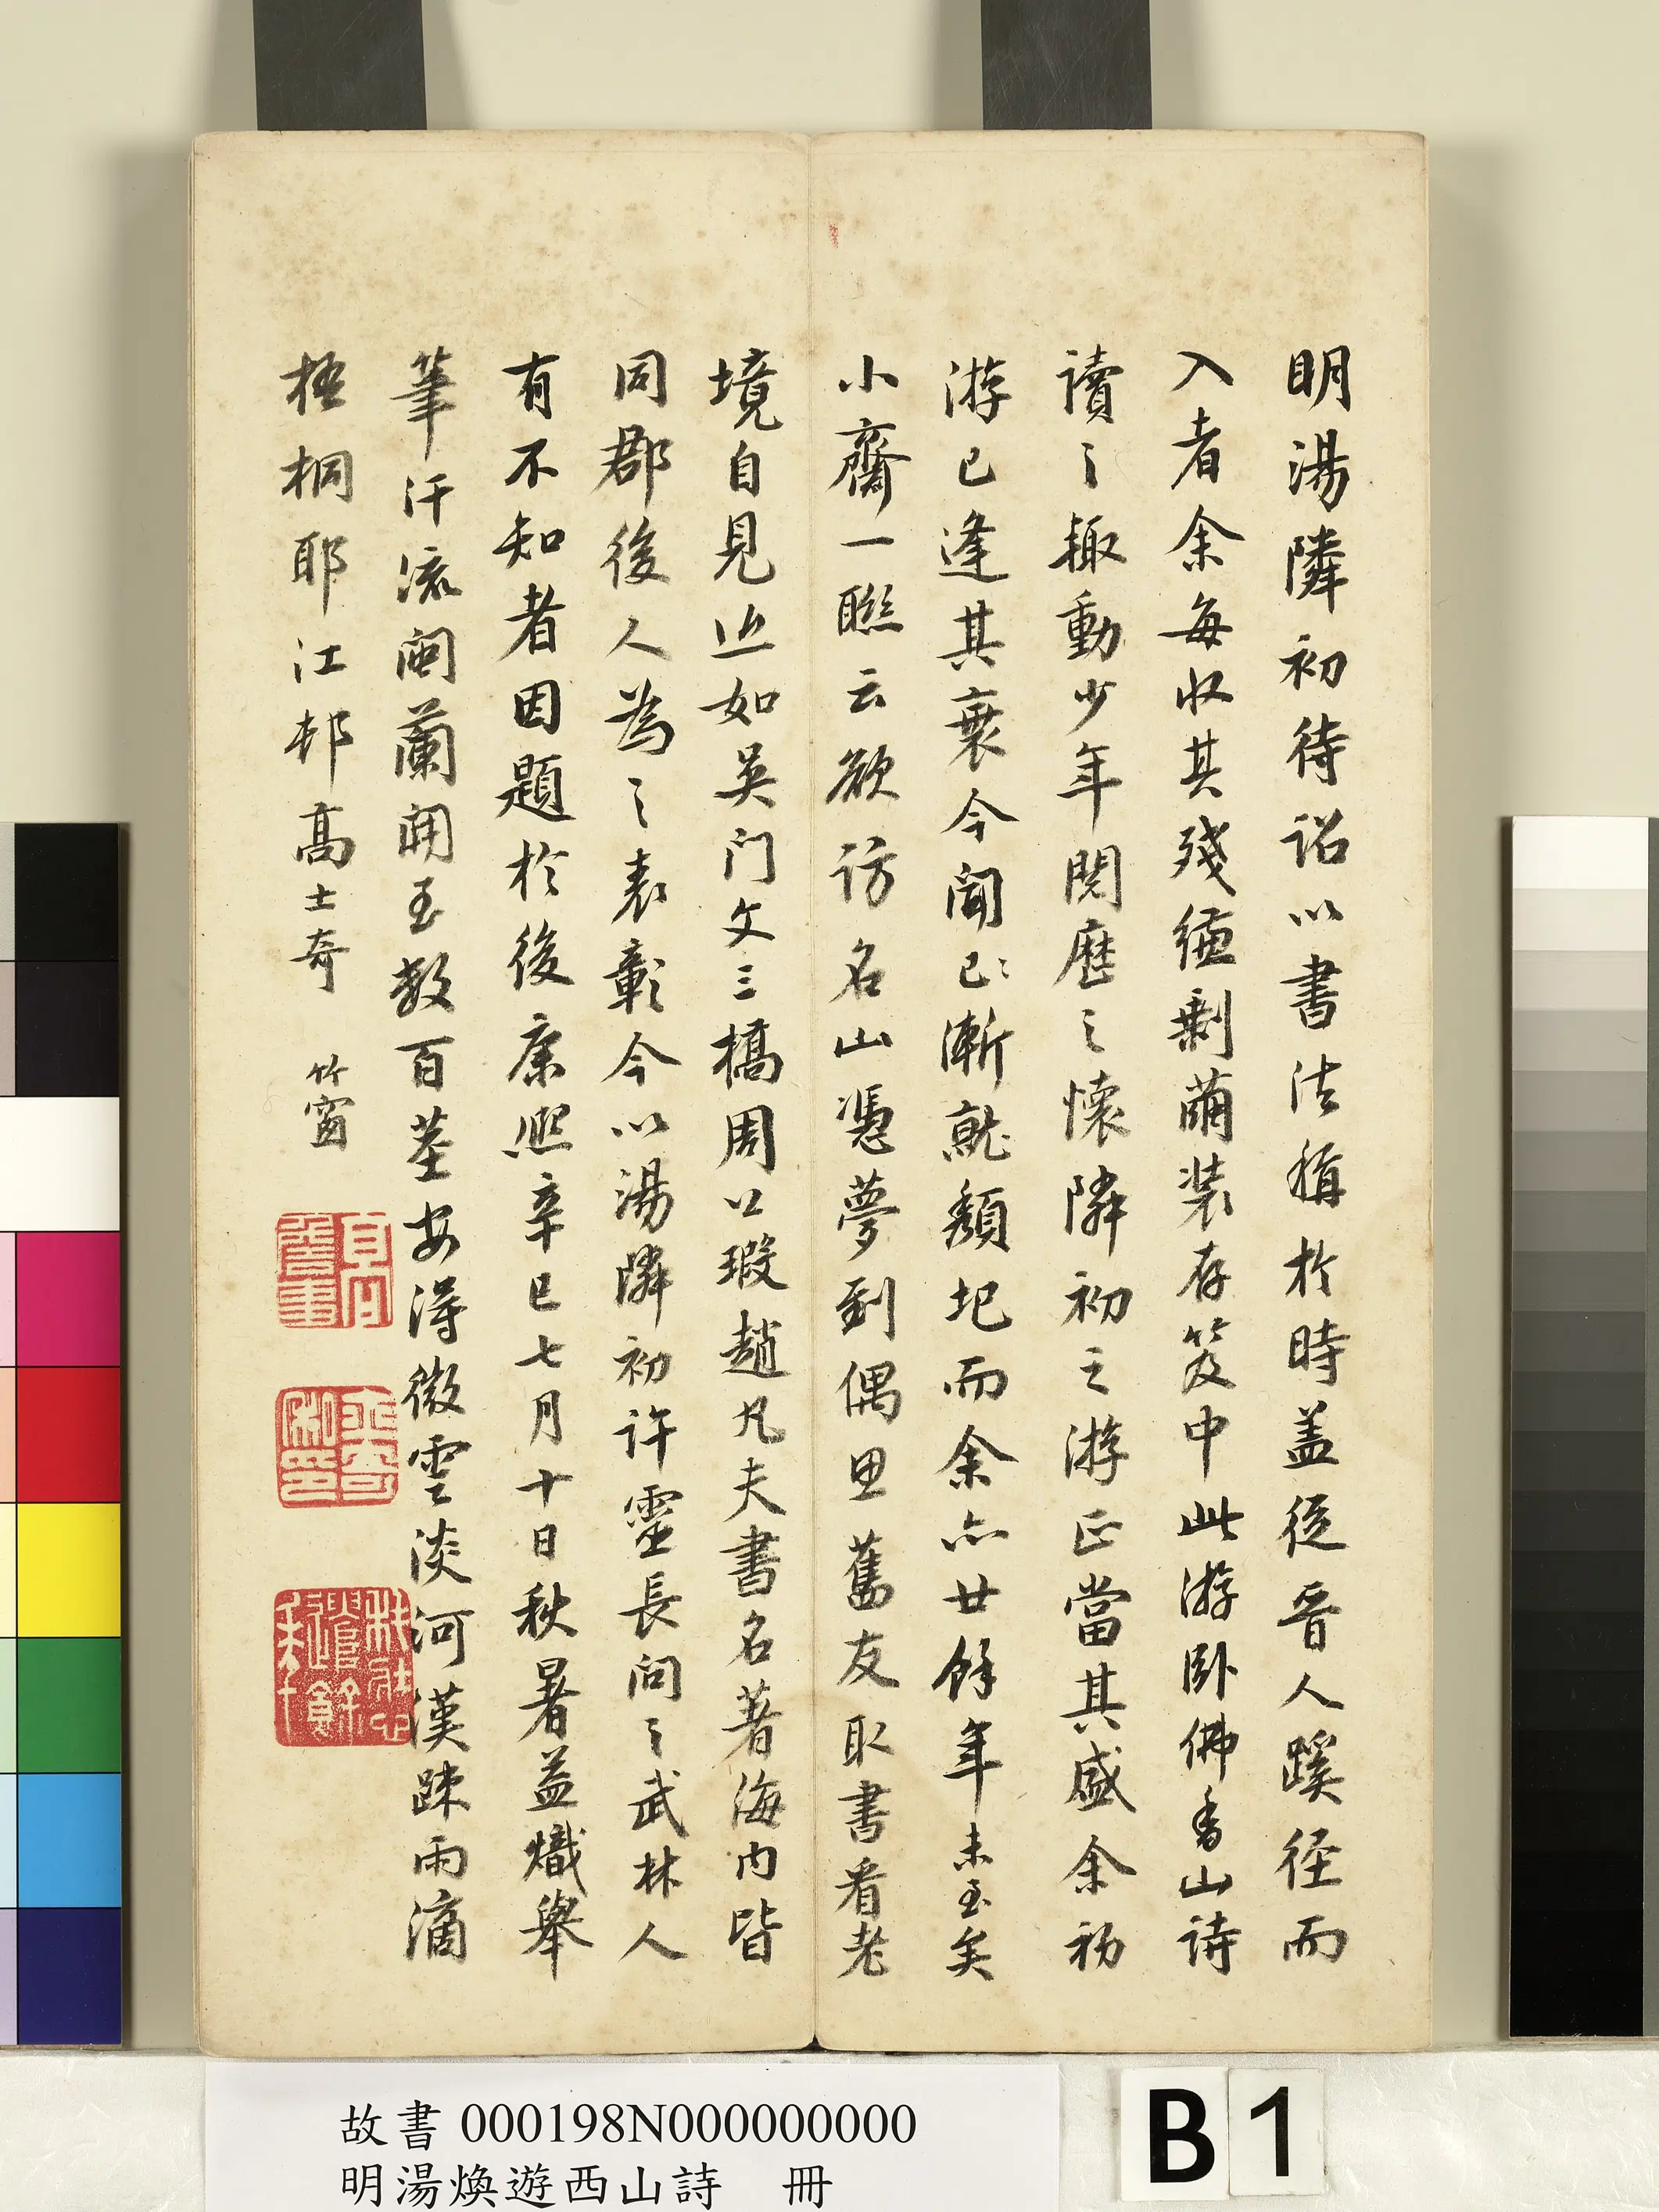 明湯隣初待詔以書法稱於時蓋從晉人蹊徑而
入者余每收其殘縑剩繭装存笈中此游卧佛香山詩
讀之輙動少年閱歷之懷隣初之游正當其盛余初
游已逢其衰今聞已漸就頹圮而余亦廿餘年未至矣
小齋一聯云欲訪名山憑夢到偶思舊友取書看老
境自見近如吳门文三橋周公瑕趙凡夫書名著海内皆
同郡後人為之表彰今以湯隣初許靈長問之武林人
有不知者因題於後康熙辛巳七月十日秋暑益熾舉
筆汗流闽蘭開至數百莖安得微雲淡河漢疎雨滴
梧桐耶江邨高士奇 竹窗
故書 000198N000000000
明湯煥遊西山詩 冊
B1